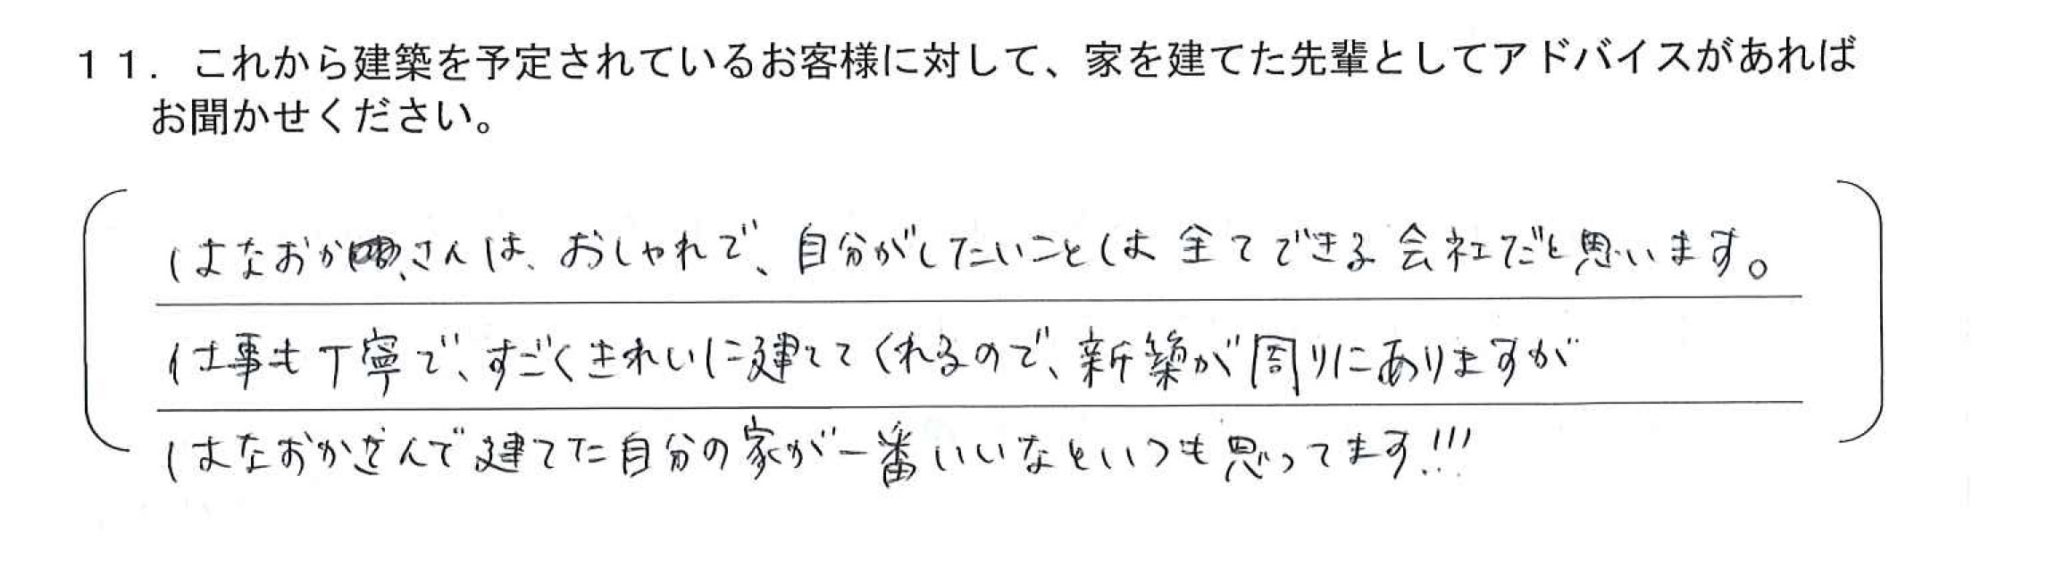 11．これから建築を予定されているお客様に対して、家を建てた先輩としてアドバイスがあれば
お聞かせください。
はなおかさんは、おしゃれで、自分がしたいことは全てできる会社だと思います。
仕事も丁寧で、すごくきれいに建ててくれるので、新築が周りにありますが
はなおかさんで建てた自分の家が一番いいなといつも思ってます!!!